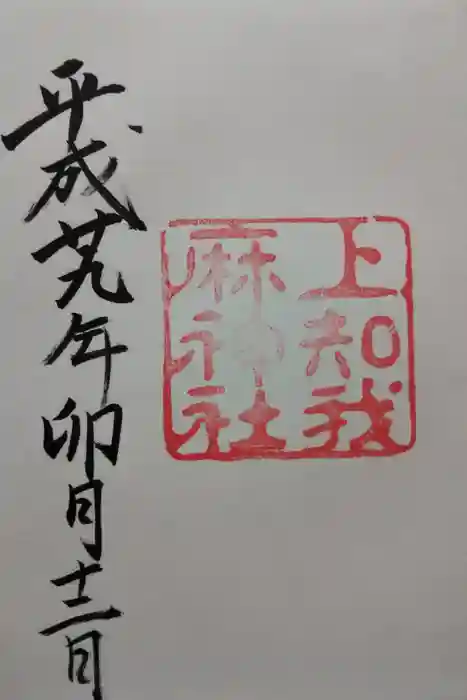 上知我
麻神社
平成廿九年卯月十二日